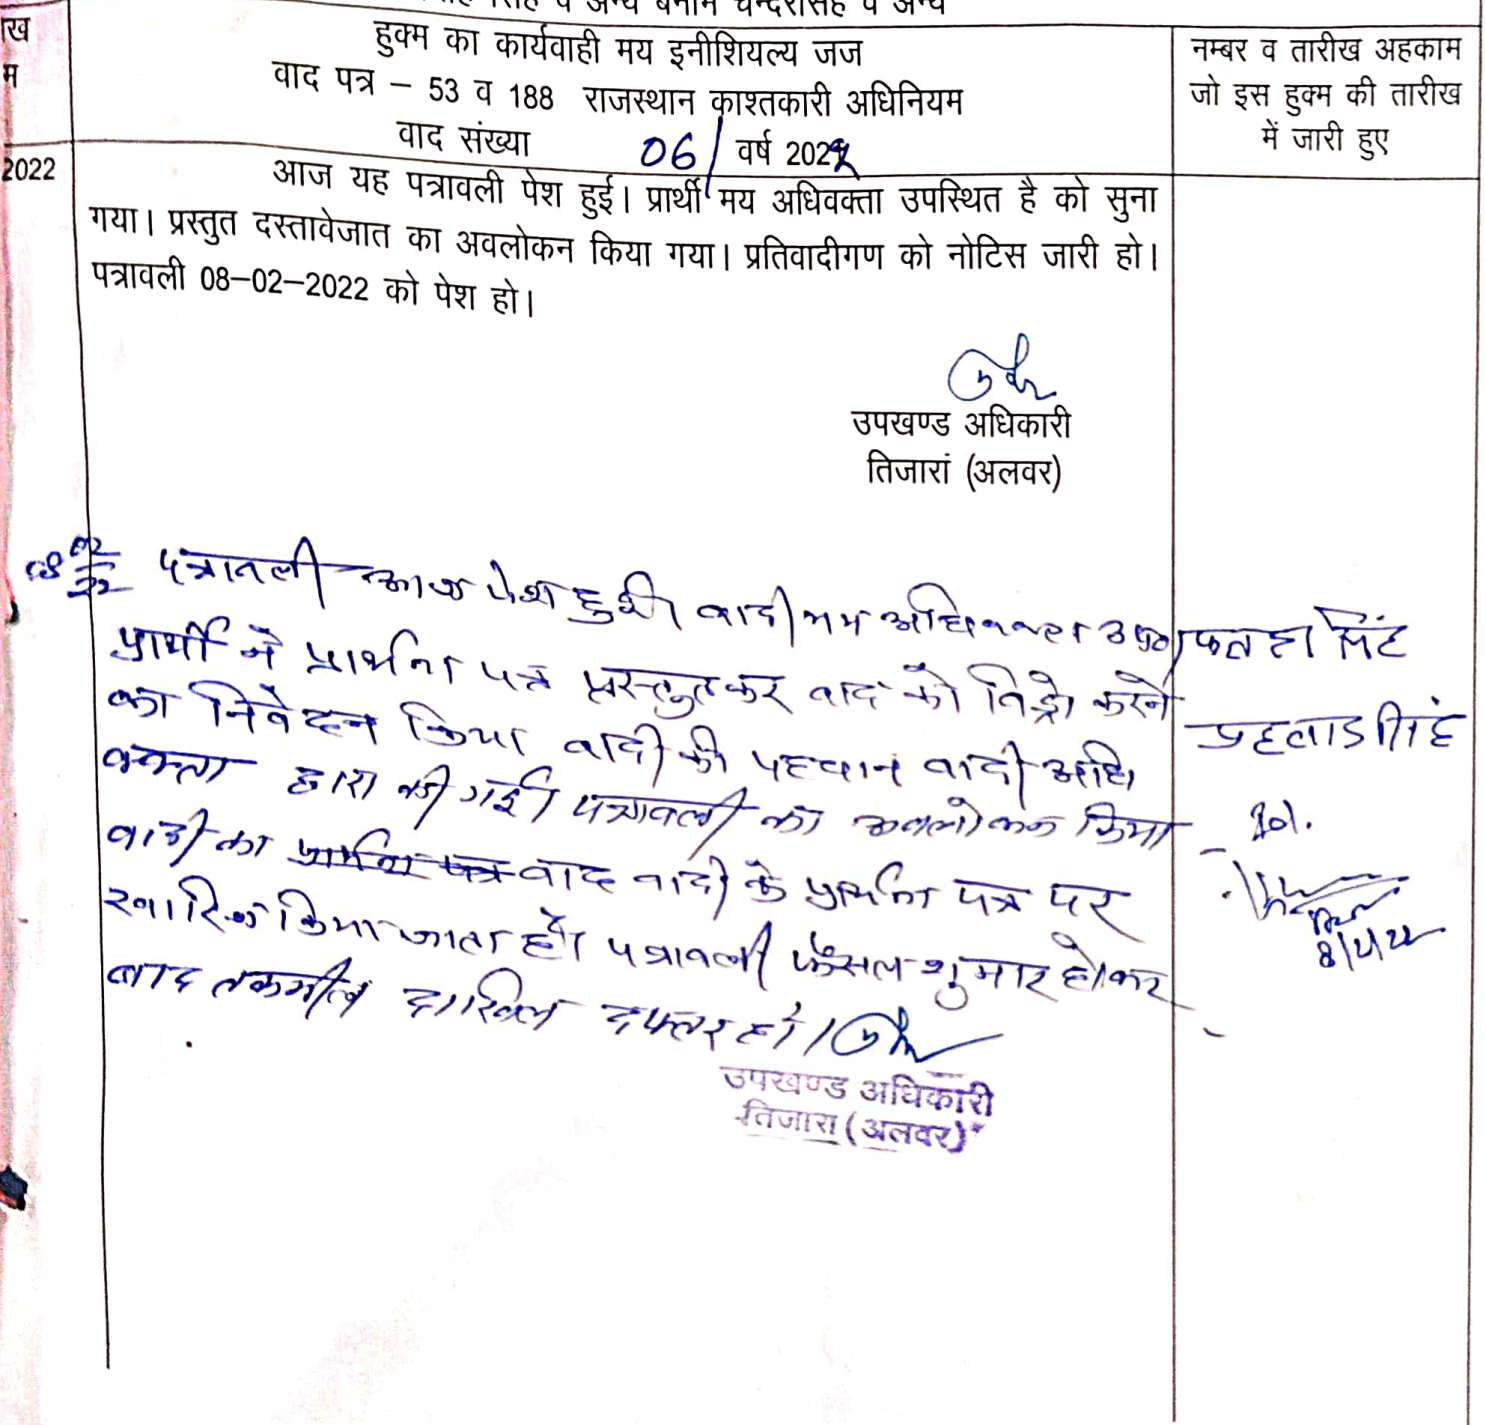 व अन्य बनाम चन्दरसिंह व अन्य
ख
म
हुक्म का कार्यवाही मय इनीशियल्य जज
वाद पत्र – 53 व 188 राजस्थान काश्तकारी अधिनियम
वाद संख्या 06/ वर्ष 2022
नम्बर व तारीख अहकाम
जो इस हुक्म की तारीख
में जारी हुए
2022
आज यह पत्रावली पेश हुई। प्रार्थी मय अधिवक्ता उपस्थित है को सुना
गया। प्रस्तुत दस्तावेजात का अवलोकन किया गया। प्रतिवादीगण को नोटिस जारी हो।
पत्रावली 08–02–2022 को पेश हो।
उपखण्ड अधिकारी
तिजारां (अलवर)
08 02 22 पत्रावली आज पेश हुई। वादी मय अधिवक्ता उप०।
प्रार्थी ने प्रार्थना पत्र प्रस्तुत कर वाद को विड्रो करने
का निवेदन किया वादी की पहचान वादी अधि
वक्ता द्वारा की गई। पत्रावली का अवलोकन किया
वादी का प्रार्थना पत्र वाद वादी के प्रार्थना पत्र पर
खारिज किया जाता है। पत्रावली फैसल शुमार होकर
बाद तकमील दाखिल दफ्तर हो।
उपखण्ड अधिकारी
तिजारा (अलवर)
सिंह
प्रहलाद सिंह
8/2/22